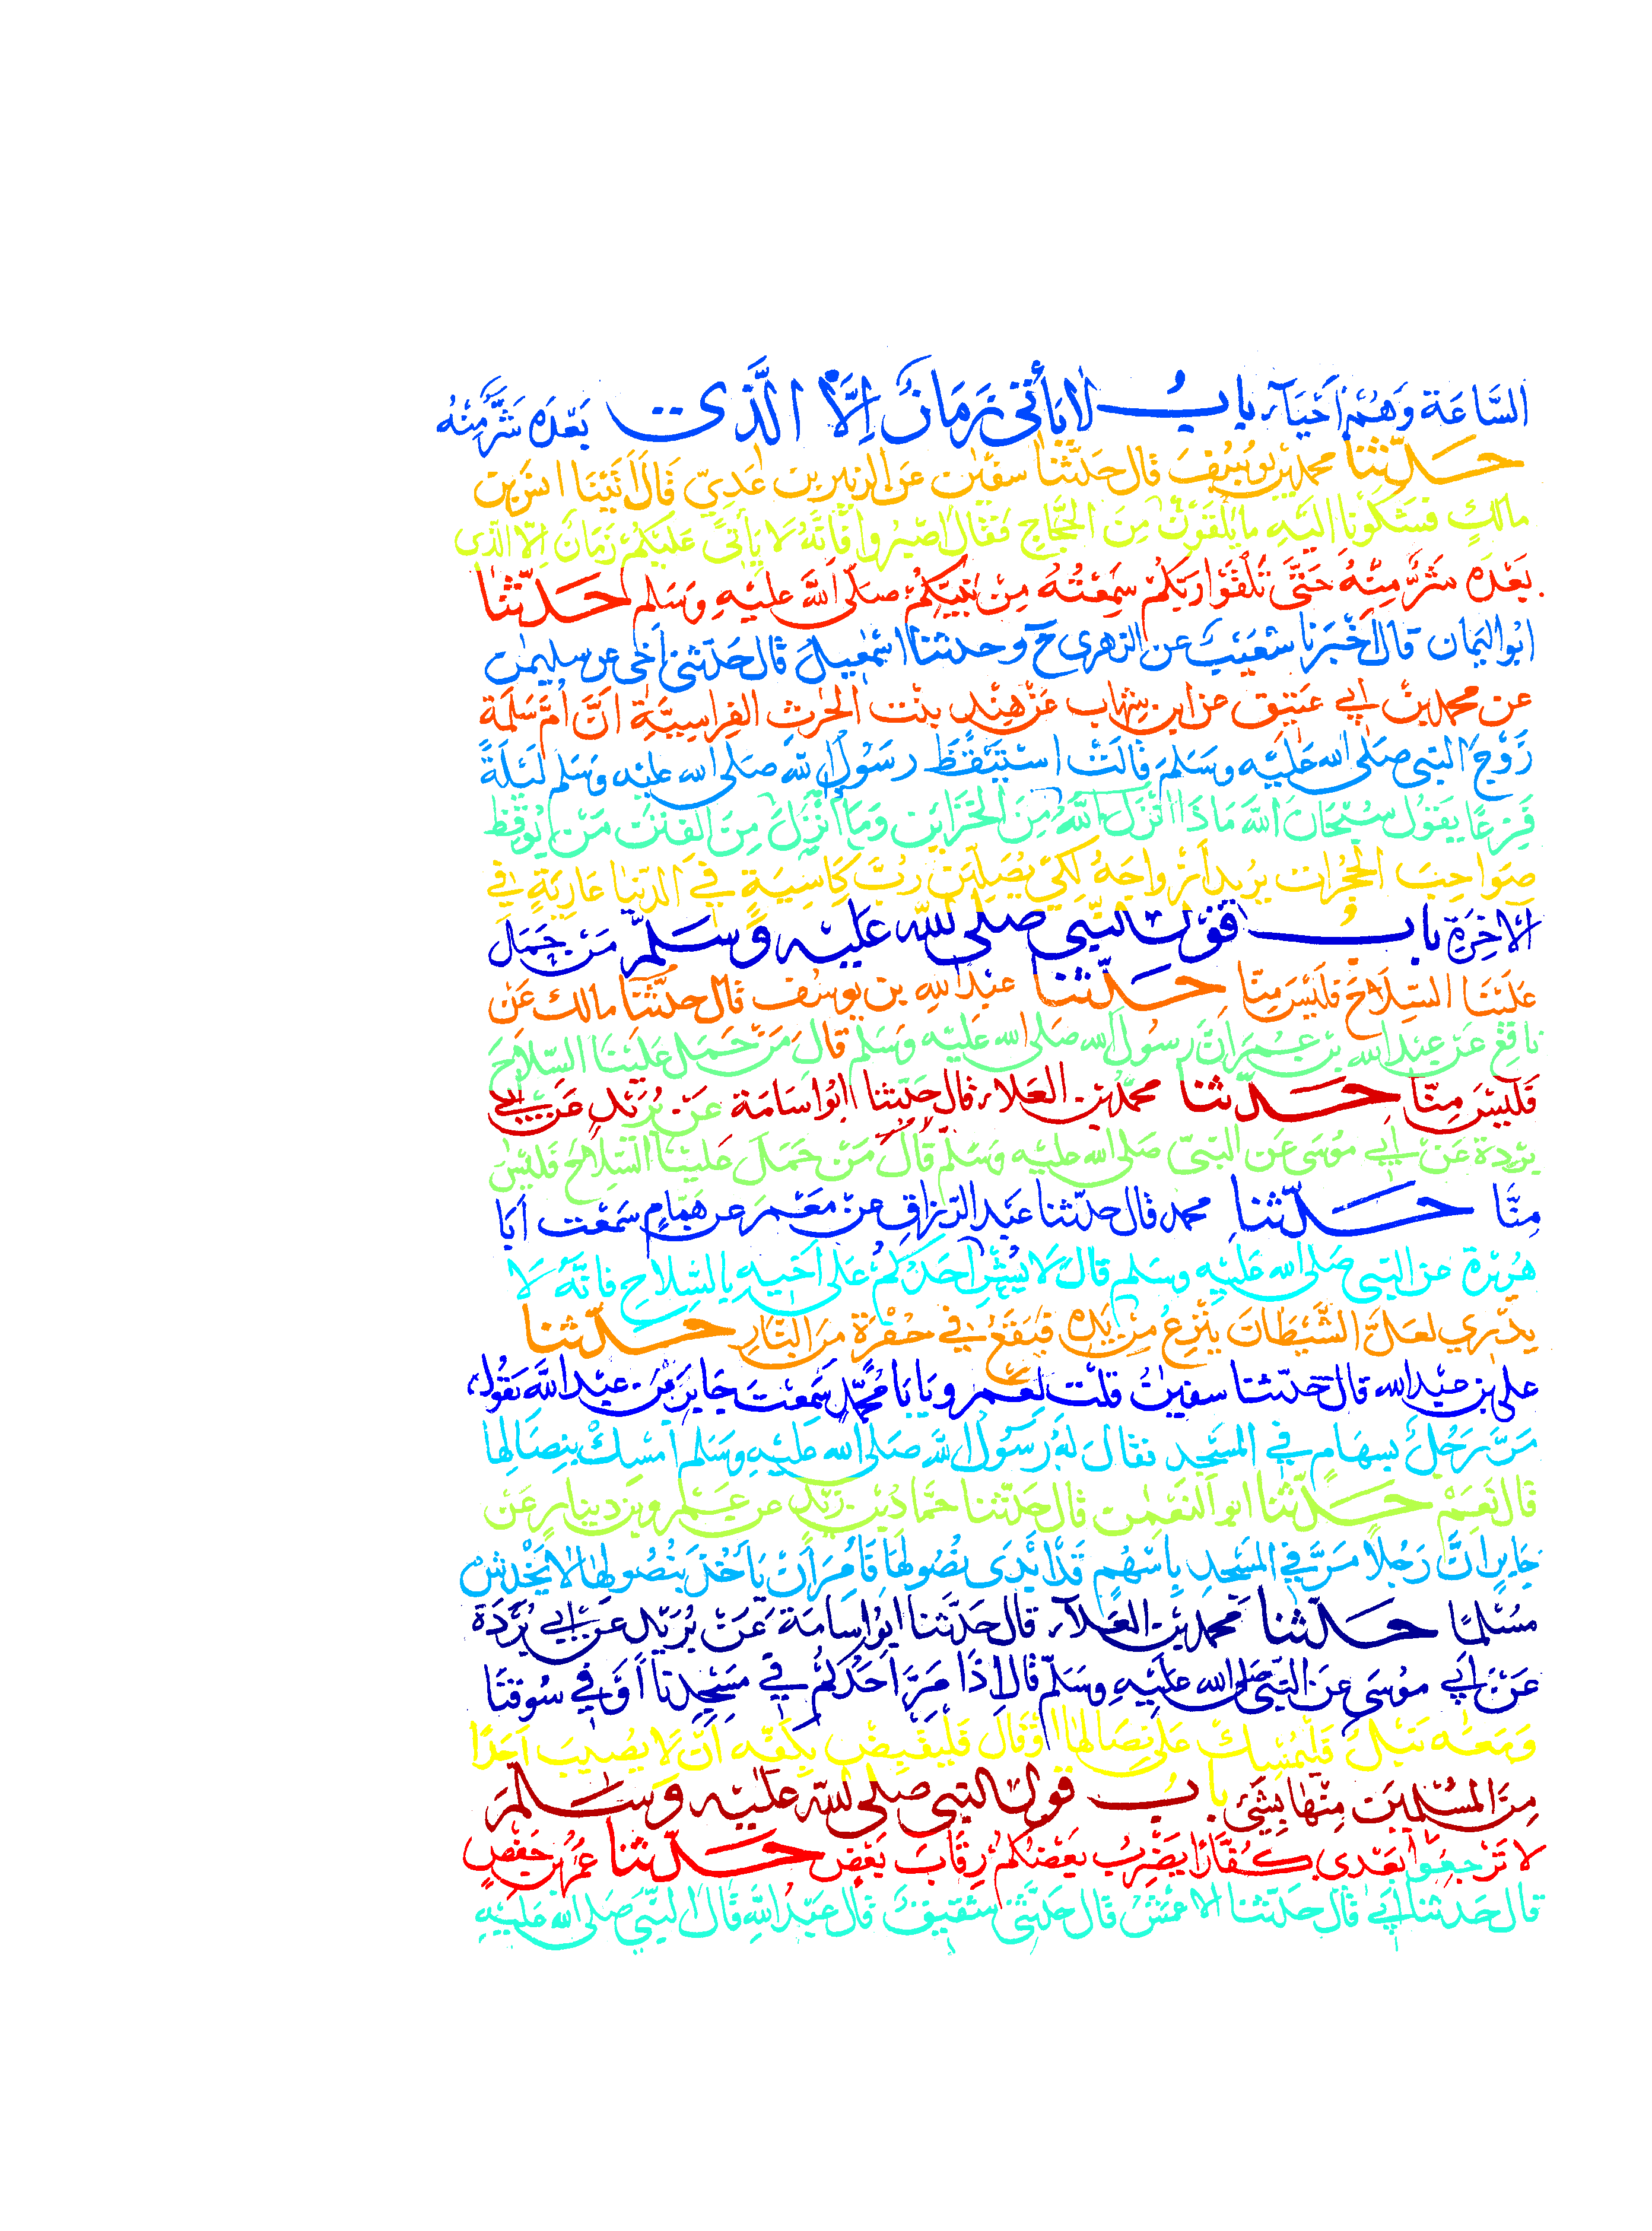 السَّاعَة وَهُمْ اَحْيَآء بابُ لا يَأتى زَمَانٌ اِلَّا الَّذى بَعْدَه شَرٌّ مِنْهُ
حدّثنا محمد بن يوسُفَ قال حَدّثنا سفيٰن عَن الزبير بن عَدِيّ قَالَ اَتَيْنَا انسَ بن
مالكٍ فشَكَوْنا اليَهِ ما يَلْقَوْنَ مِنَ الحَجَّاجِ فَقَالَ اصْبِرُوا فَانَّهُ لَا يَأتى عَلَيْكُمْ زَمَانٌ اِلّا الّذى
بَعْدَه شَرٌّ مِنْهُ حَتَّى تَلْقَوْا رَبّكُمْ سَمِعْتُهُ مِنْ نَبيّكُمْ صَلّى اللَّه عليْهِ وَسَلم حَدّثنا
ابُو اليَمان قال اَخْبَرَنا شعَيْبٌ عن الزهرى ح وحدثنا اسْمٰعِيلُ قال حَدّثنى اَخى عن سليمٰن
عن محمد بن اَبى عَتيق عن ابن شِهَاب عَنْ هِنْد بنْت الحٰرثِ الفِراسِيَّةِ انَّ اُمَّ سَلَمَة
زَوْجَ النبى صَلى الله عَلَيْه وسَلم قالَتْ اسْتَيْقَظَ رسُولُ الله صَلى الله عليه وسَلم لَيْلَةً
فَزِعًا يَقوُل سبْحَانَ اللَّه مَاذَا اَنْزَلَ اللَّهُ مِنَ الخَزَاين وَمَا اُنْزِلَ مِنَ الفتَن مَنْ يُوقِظ
صَوَاحِبَ الحُجُرات يريد اَزْواجَهُ لكَىْ يُصَلِّينَ رُبَّ كَاسِيَةٍ في الدّنيا عَارِيَةٍ في
الآخِرَة بابُ قَوْل النَّبى صلى الله عَلَيْه وَسَلَّمَ مَنْ حَمَلَ
عَلَيْنَا السِّلَاحَ فَلَيْسَ مِنّا حَدّثنا عبْد اللهِ بن يوسُف قال حدّثنَا مالك عَنْ
نافعٍ عَنْ عبد الله بن عُمَر اَنَّ رسُولَ الله صَلى الله عَليْه وَسَلم قالَ مَنْ حَمَل عَليْنَا السّلاحَ
فَليْسَ مِنّا حَدّثنا محمّد بن العَلاء قال حَدّثنا ابُو اسَامَة عَنْ بُرَيْد عَنْ اَبى
برْدة عَنْ اَبى مُوسَى عَن النَبىّ صَلى الله عليْه وَسَلَّم قَالَ مَنْ حَمَلَ عَليْنَا السِّلَاحَ فَليْسَ
مِنَّا حَدّثنا محمد قال حدّثنا عَبْد الرّزاق عنْ مَعْمَر عن هَمَّامٍ سَمعْت اَبَا
هُرَيْرَة عن النبى صَلى الله عَليْهِ وسَلم قالَ لَا يُشيرُ اَحَدُكُمْ عَلى اَخيه بِالسِّلاحِ فانّهُ لَا
يدْرى لعَلَّ الشَّيْطَانَ يَنْزِعُ مِنْ يَدِه فَيَقَعُ فى حُفْرَة منَ النَّارِ حَدّثنا
على بن عبْد الله قال حَدّثنا سفيٰنُ قلت لعَمرو يَا بَا مُحَمَّد سَمعْت جَابِرَ بن عبْد اللَّه يَقُول
مَرَّ رَجُلٌ بسِهَامٍ في المَسْجد فقالَ لَهُ رَسُولُ اللَّه صَلى الله عليْهِ وسَلم اَمْسكْ بِنِصَالِها
قال نَعَمْ حَدّثنا ابو النعْمٰن قال حَدّثنا حمَّاد بْن زَيْد عن عَمْرو بن دينار عَنْ
جَابرٍ انَّ رَجُلًا مَرَّ في المَسْجدِ بِاَسْهُمٍ قَدْ اَبْدَى نُصُولهَا فَاُمِرَ اَنْ يَاْخُذَ بنُصُولِها لا يَخْدِشُ
مُسْلمًا حَدّثنا محمد بن العَلآء قال حَدّثَنا ابُو اسَامَة عَنْ بُرَيْد عن اَبى بُرْدَة
عَنْ اَبى موُسَى عَن النَّبىّ صَلى الله عليْهِ وسَلمَ قال اِذَا مَرَّ اَحَدُكُمْ فى مَسْجِدِنَا اَوْ فى سُوقنَا
وَمَعَه نَبْلٌ فَلْيُمْسِك عَلى نِصَالهَا اَوْ قَال فَلْيَقْبِضْ بِكَفِّه اَنْ لَا يُصِيبَ اَحَدًا
مِنَ المُسْلمِينَ مِنْهَا بشَيْءٍ بابُ قول النبى صلى الله عَليْه وَسَلَّمَ
لا تَرْجعُوا بَعْدى كُفّارًا يَضْرِبُ بَعْضُكمْ رِقَابَ بَعْضٍ حَدّثنا عُمَرُ بن حَفْصٍ
قال حَدثنا اَبى قال حَدّثنا الاعمَشُ قال حَدّثنى شَقيقٌ قال عَبْد اللَّهِ قال النَّبىّ صَلى الله عَليْهِ